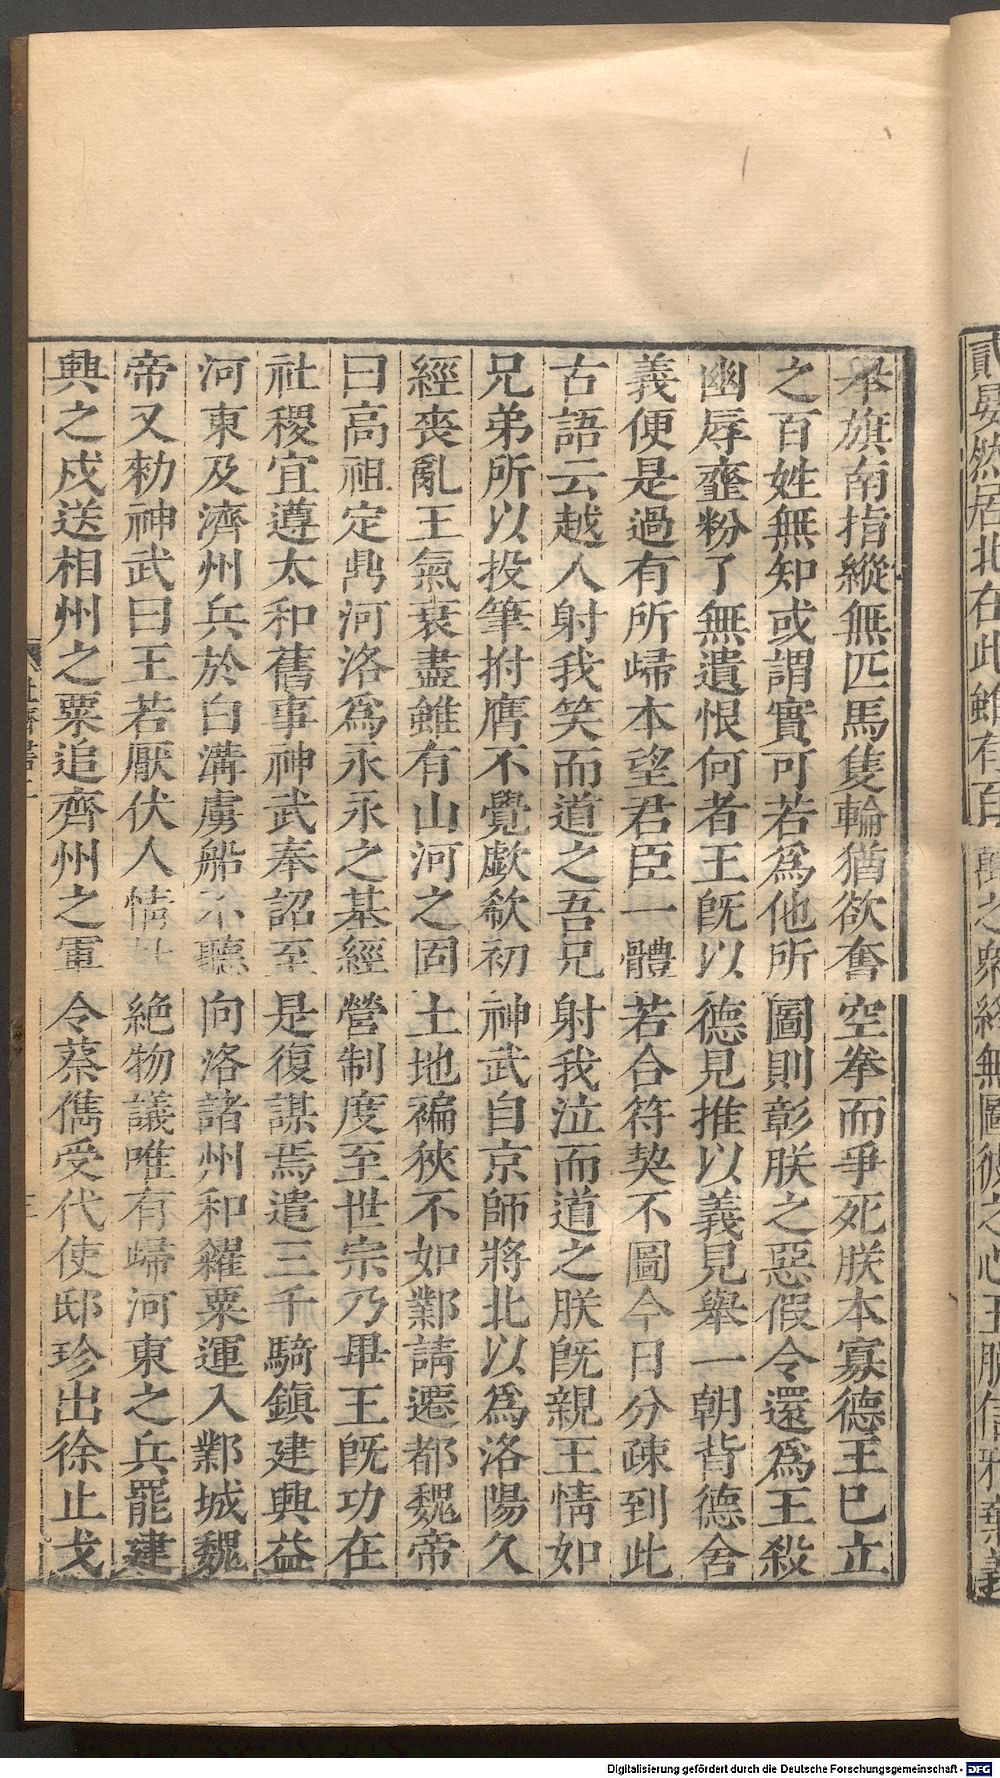 貳晏然居北在此雖有百萬之衆終無圖彼之心王脫信邪棄義
舉旗南指縱無匹馬隻輪猶欲奮空拳而爭死朕本寡德王已立
之百姓無知或謂實可若爲他所圖則彰朕之惡假令還爲王殺
幽辱虀粉了無遺恨何者王旣以德見推以義見舉一朝背德舍
義便是過有所歸本望君臣一體若合符契不圖今日分疎到此
古語云越人射我笑而道之吾兄射我泣而道之朕旣親王情如
兄弟所以投筆拊膺不覺歔欷初神武自京師將北以爲洛陽久
經喪亂王氣衰盡雖有山河之固土地褊狹不如鄴請遷都魏帝
曰高祖定鼎河洛爲永永之基經營制度至世宗乃畢王旣功在
社稷宜遵太和舊事神武奉詔至是復謀焉遣三千騎鎮建興益
河東及濟州兵於白溝虜船不聽向洛諸州和糴粟運入鄴城魏
帝又勑神武曰王若厭伏人情杜絕物議唯有歸河東之兵罷建
興之戍送相州之粟追齊州之軍令蔡儁受代使邸珍出徐止戈
Digitalisierung gefördert durch die Deutsche Forschungsgemeinschaft - DFG